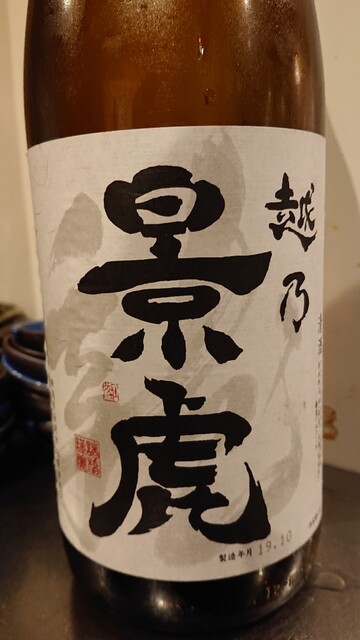 越乃
景虎
製造年月 19.10